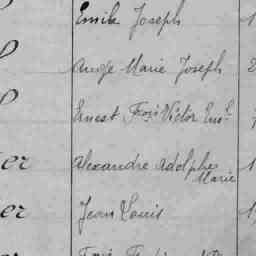 Emile Joseph
Ange Marie Joseph
Ernest Fçois Victor Em.
er Alexandre Adolphe
Marie
er Jean Louis
er